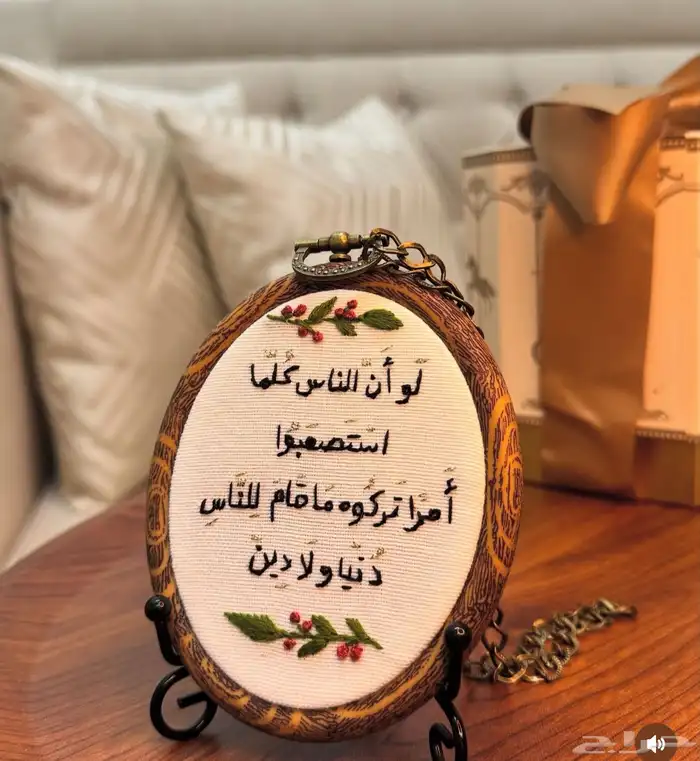 لَو أَنَّ النَّاسَ كُلَّمَا
استَصعَبُوا
أَمرًا تَركُوه مَا قَامَ لِلنَّاسِ
دُنيَا ولَا دِينٌ
حراج